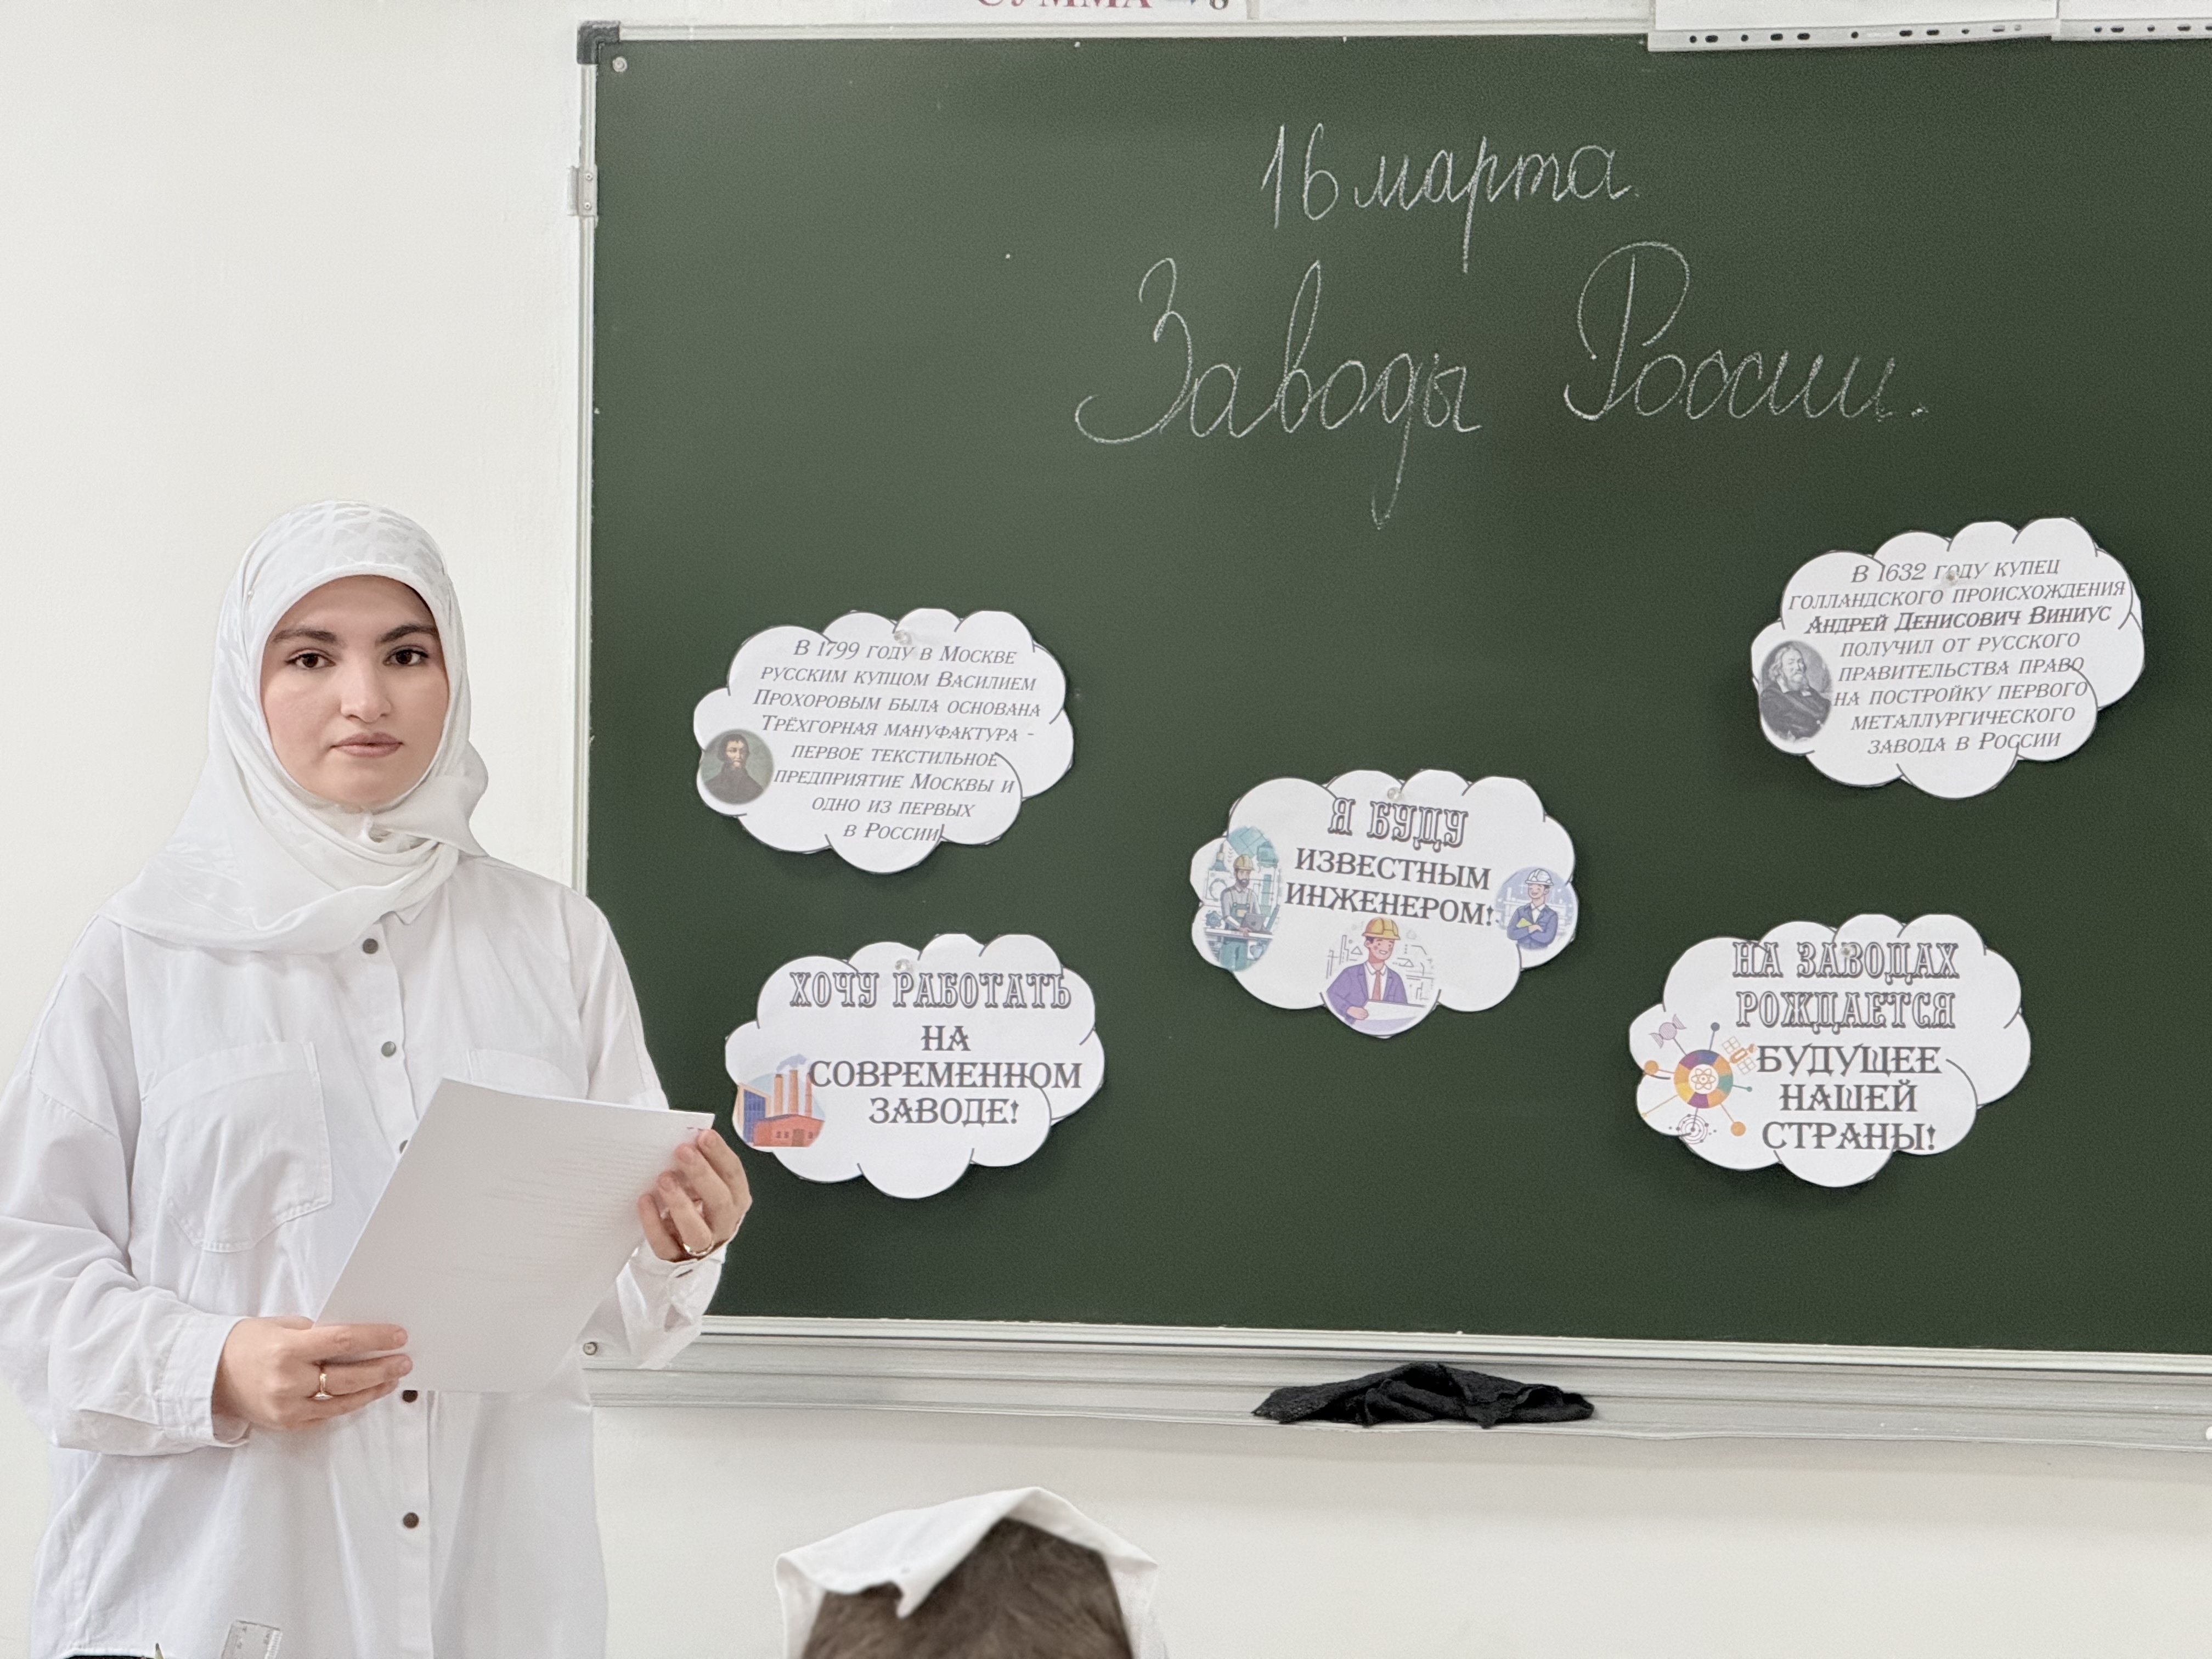 СУММА → 8
16 марта.
Заводы России.
В 1799 году в Москве
русским купцом Василием
Прохоровым была основана
Трёхгорная мануфактура -
первое текстильное
предприятие Москвы и
одно из первых
в России
В 1632 году купец
голландского происхождения
Андрей Денисович Виниус
получил от русского
правительства право
на постройку первого
металлургического
завода в России
Я БУДУ
ИЗВЕСТНЫМ
ИНЖЕНЕРОМ!
ХОЧУ РАБОТАТЬ
НА
СОВРЕМЕННОМ
ЗАВОДЕ!
НА ЗАВОДАХ
РОЖДАЕТСЯ
БУДУЩЕЕ
НАШЕЙ
СТРАНЫ!